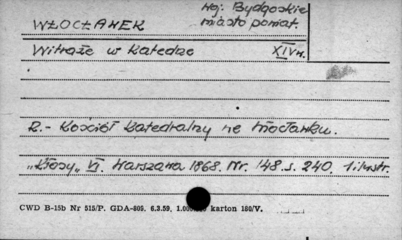 WŁOCŁAWEK
Woj. Bydgoskie
miasto powiat.
Witraże w Katedrze
XIV w.
R. - Kościół Katedralny we Włocławku.
"Kłosy" VI. Warszawa 1868. Nr. 148. s. 240. 1 ilustr.
CWD B-15b Nr 515/P. GDA-809. 6.3.59, karton 180/V.